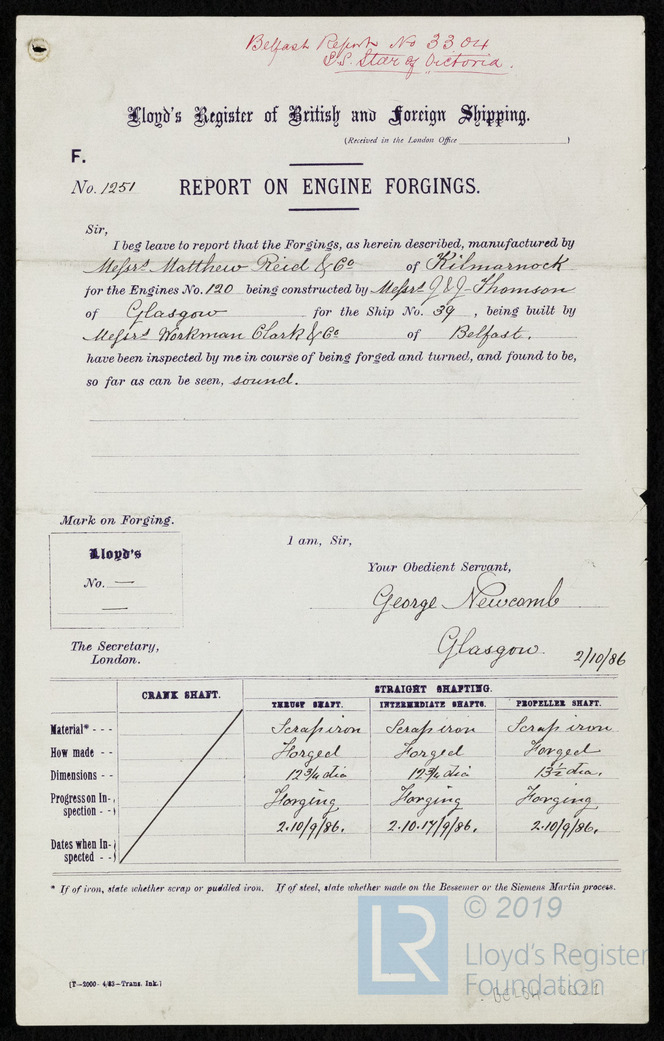 Belfast Report No 3304
S.S. Star of Victoria.
Lloyd's Register of British and Foreign Shipping.
(Received in the London Office )
F.
No. 1251 REPORT ON ENGINE FORGINGS.
Sir,
I beg leave to report that the Forgings, as herein described, manufactured by
Messrs Matthew Reid & Co of Kilmarnock
for the Engines No. 120 being constructed by Messrs J & J Thomson
of Glasgow for the Ship No. 39, being built by
Messrs Workman Clark & Co of Belfast.
have been inspected by me in course of being forged and turned, and found to be,
so far as can be seen, sound.
Mark on Forging.
Lloyd's
No. —
—
I am, Sir,
Your Obedient Servant,
George Newcomb
Glasgow. 2/10/86
The Secretary,
London.
CRANK SHAFT. STRAIGHT SHAFTING.
THRUST SHAFT. INTERMEDIATE SHAFTS. PROPELLER SHAFT.
Material* - - - Scrap iron Scrap iron Scrap iron
How made - - Forged Forged Forged
Dimensions - - 12 3/4 dia 12 3/4 dia 13 1/2 dia.
Progress on In-
spection - - Forging Forging Forging
2.10/9/86. 2.10.17/9/86. 2.10/9/86.
Dates when In-
spected - -
* If of iron, state whether scrap or puddled iron. If of steel, state whether made on the Bessemer or the Siemens Martin process.
[T—2000—4/83—Trans. Ink.]
LR © 2019
Lloyd's Register
Foundation